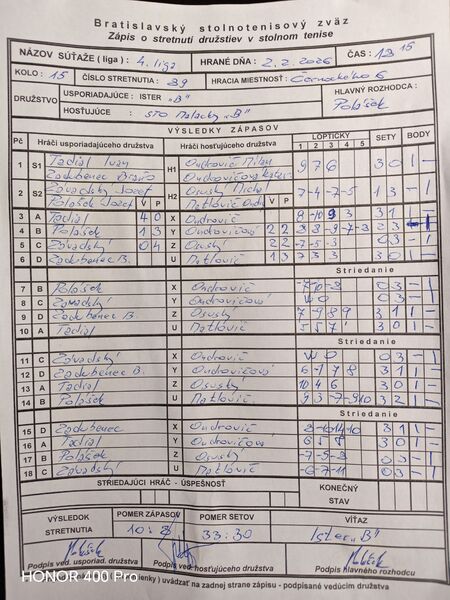 Bratislavský stolnotenisový zväz
Zápis o stretnutí družstiev v stolnom tenise
NÁZOV SÚŤAŽE ( liga ) : 4. liga HRANÉ DŇA : 2.2.2026 ČAS : 18 15
KOLO : 15 ČÍSLO STRETNUTIA : 89 HRACIA MIESTNOSŤ: Černockého 6
DRUŽSTVO USPORIADAJÚCE : ISTER „B" HLAVNÝ ROZHODCA : Polášek
HOSŤUJÚCE : STO Malacky „B"
VÝSLEDKY ZÁPASOV
Pč Hráči usporiadajúceho družstva Hráči hosťujúceho družstva LOPTIČKY SETY BODY
1 2 3 4 5
1 S1 Tadial Ivan H1 Ondrovič Milan 9 7 6 3 0 1 -
Zadubenec Braňo
2 S2 Závadský Jozef H2 Osuský Michal 7 -4 -7 -5 1 3 - 1
Polášek Jozef V P V P
3 A Tadial 4 0 X Ondrovič 8 -10 9 3 3 1 1 -
4 B Polášek 1 3 Y Ondrovičová 2 2
5 C Závadský 0 4 Z Osuský 2 2 -7 -5 -3 0 3 - 1
6 D Zadubenec B. U Matlovič 1 3 7 3 3 3 0 1 -
Striedanie
7 B Polášek X Ondrovič 0 3 - 1
8 C Závadský Y Ondrovičová WO 0 3 - 1
9 D Zadubenec B. Z Osuský 7 -9 8 9 3 1 1 -
10 A Tadial U Matlovič 5 5 7 3 0 1 -
Striedanie
11 C Závadský X Ondrovič WO 0 3 - 1
12 D Zadubenec B. Y Ondrovičová 6 -7 7 8 3 1 1 -
13 A Tadial Z Osuský 10 4 6 3 0 1 -
14 B Polášek U Matlovič 9 3 -7 -9 10 3 2 1 -
Striedanie
15 D Zadubenec X Ondrovič 3 1 1 -
16 A Tadial Y Ondrovičová 6 5 8 3 0 1 -
17 B Polášek Z Osuský -7 -5 -3 0 3 - 1
18 C Závadský U Matlovič -6 -7 -11 0 3 - 1
STRIEDAJÚCI HRÁČ - ÚSPEŠNOSŤ KONEČNÝ STAV
VÝSLEDOK STRETNUTIA POMER ZÁPASOV POMER SETOV VÍŤAZ
10 : 8 33 : 30 Ister „B"
Podpis ved. usporiad. družstva Podpis ved. hosťujúceho družstva Podpis hlavného rozhodcu
uvádzať na zadnej strane zápisu - podpísané vedúcim družstva
HONOR 400 Pro